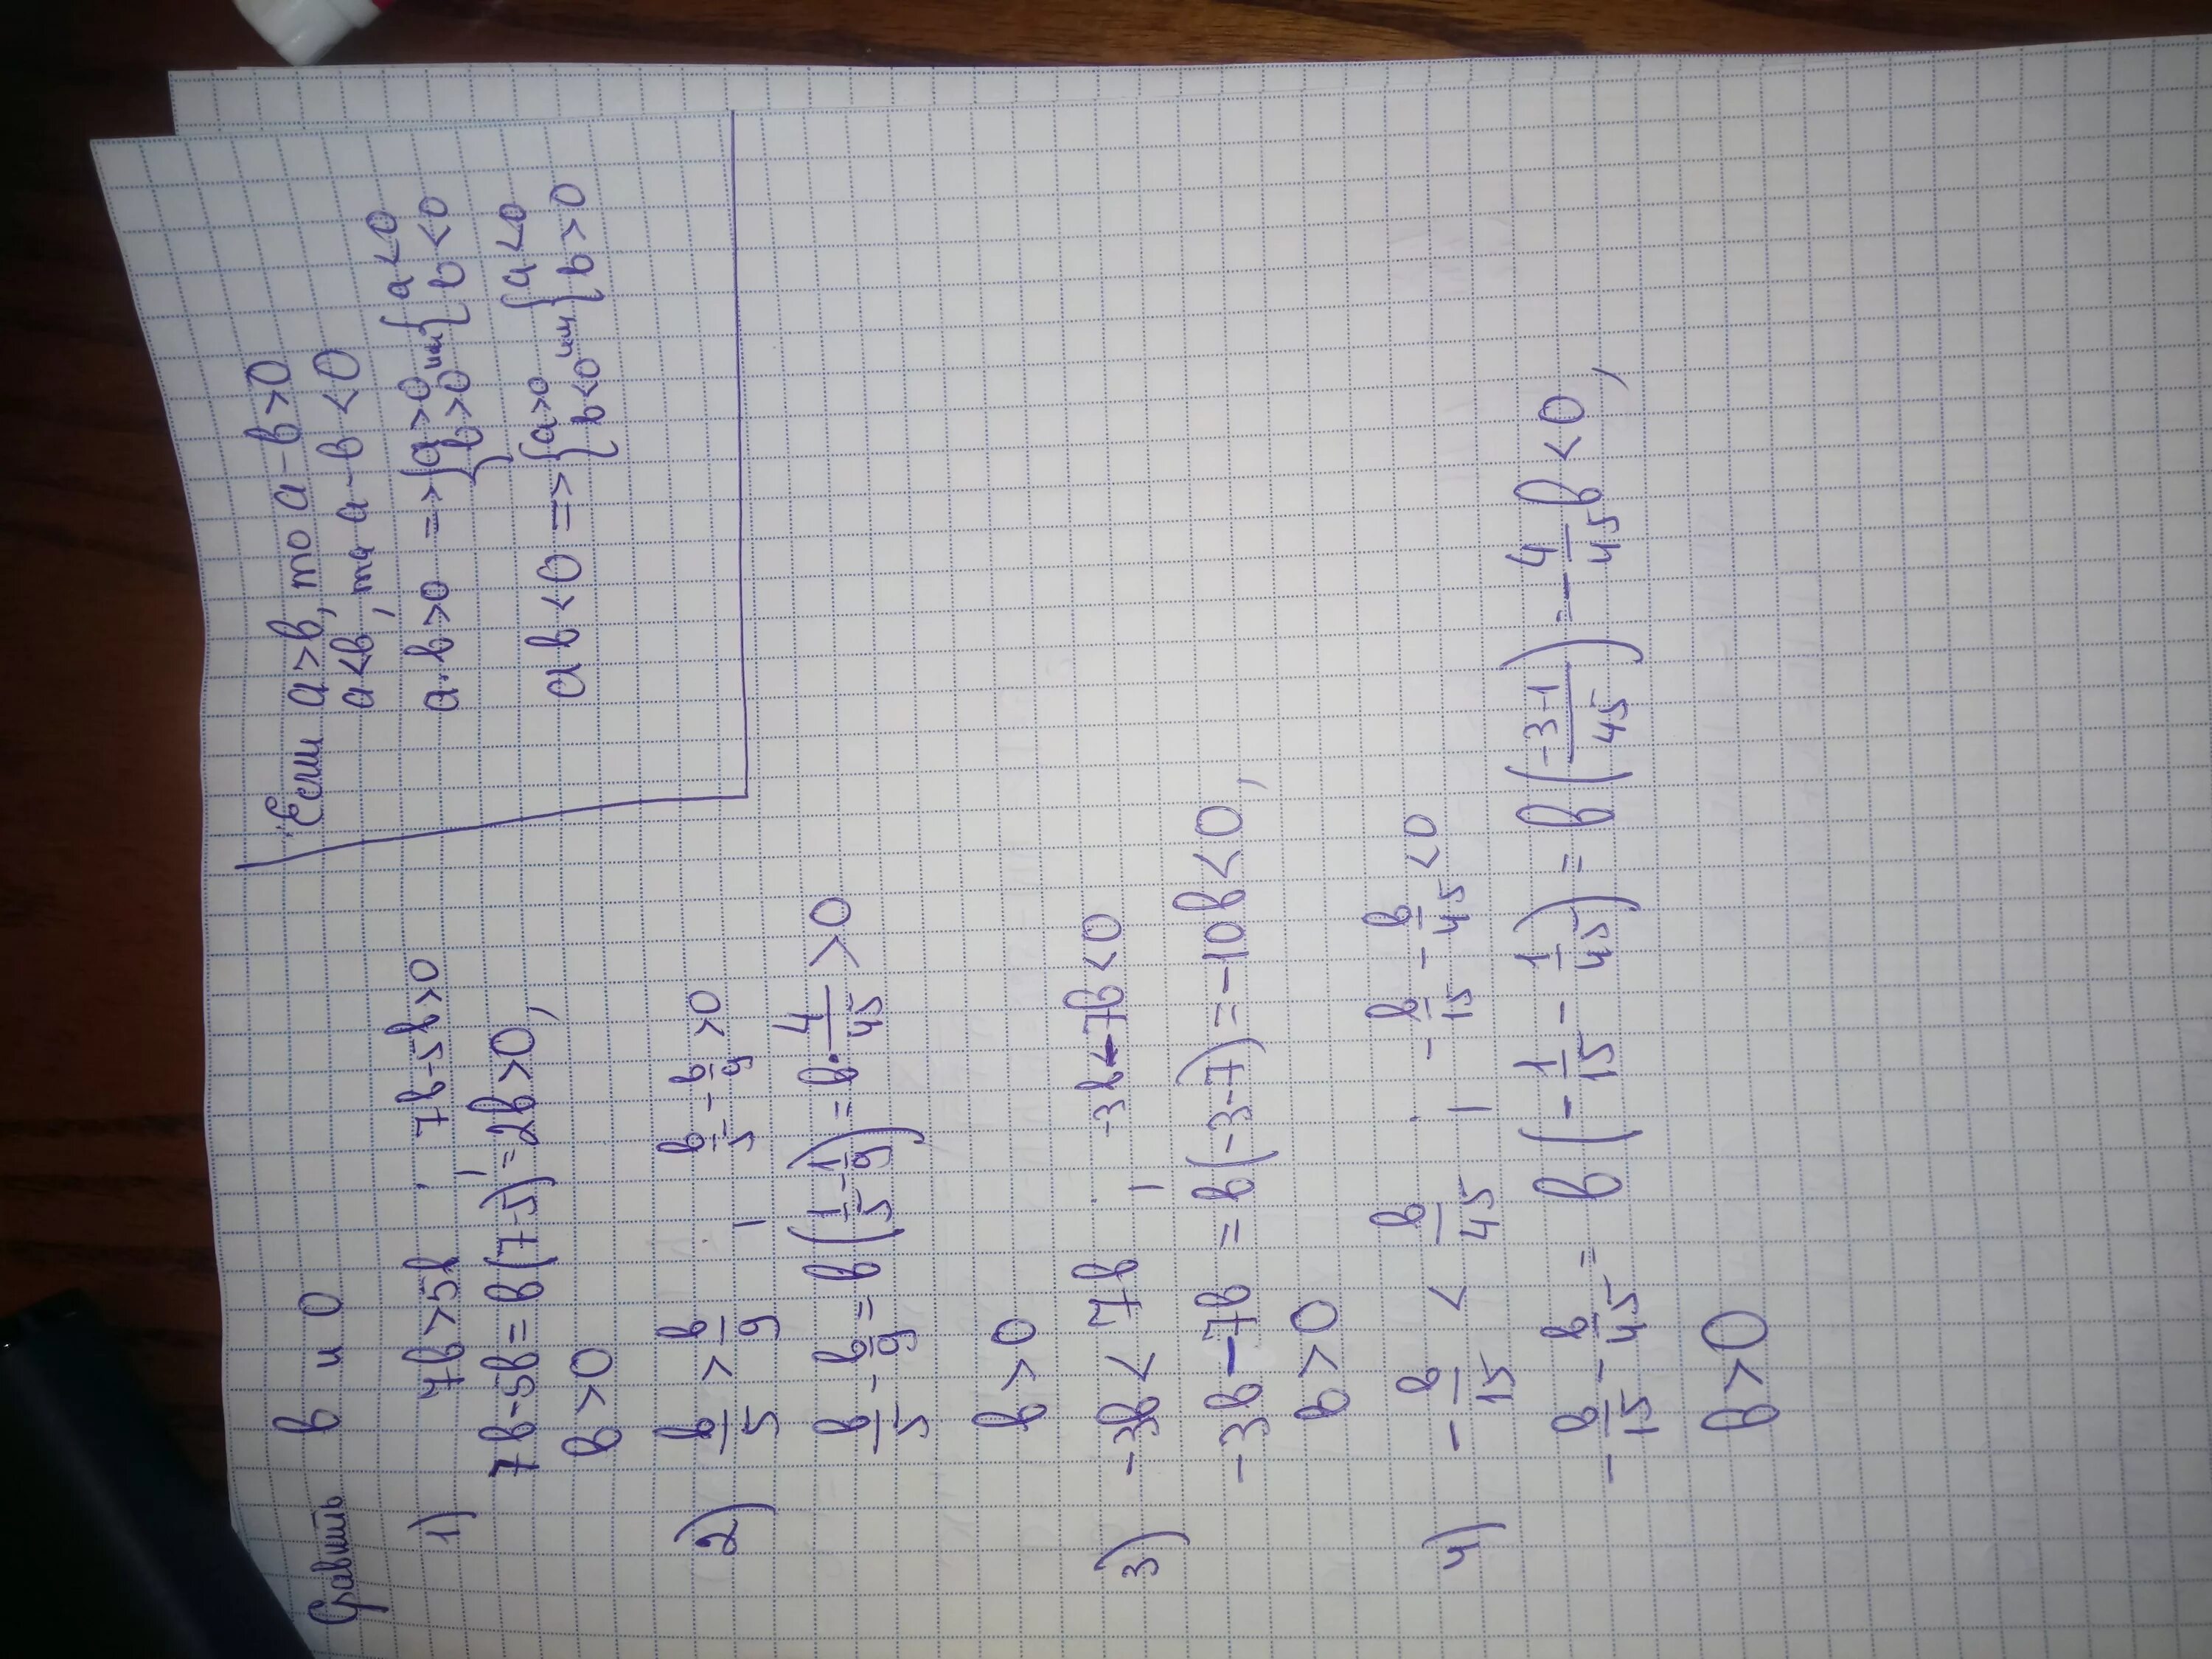 Сравнить в и 0
Если a>b, то a-b>0
a<b, то a-b<0
a·b>0 => {a>0 b>0 или {a<0 b<0
ab<0 => {a>0 b<0 или {a<0 b>0
1) 7b>5b ; 7b-5b>0
7b-5b=b(7-5)=2b>0,
b>0
2) b/5 > b/9 ; b/5 - b/9 >0
b/5 - b/9 = b(1/5 - 1/9) = b·4/45 >0
b>0
3) -3b<7b ; -3b-7b<0
-3b-7b =b(-3-7)=-10b<0,
b>0
4) - b/15 < b/45 ; - b/15 - b/45 <0
- b/15 - b/45 = b(- 1/15 - 1/45) = b(-3-1/45) = - 4/45 b<0,
b>0